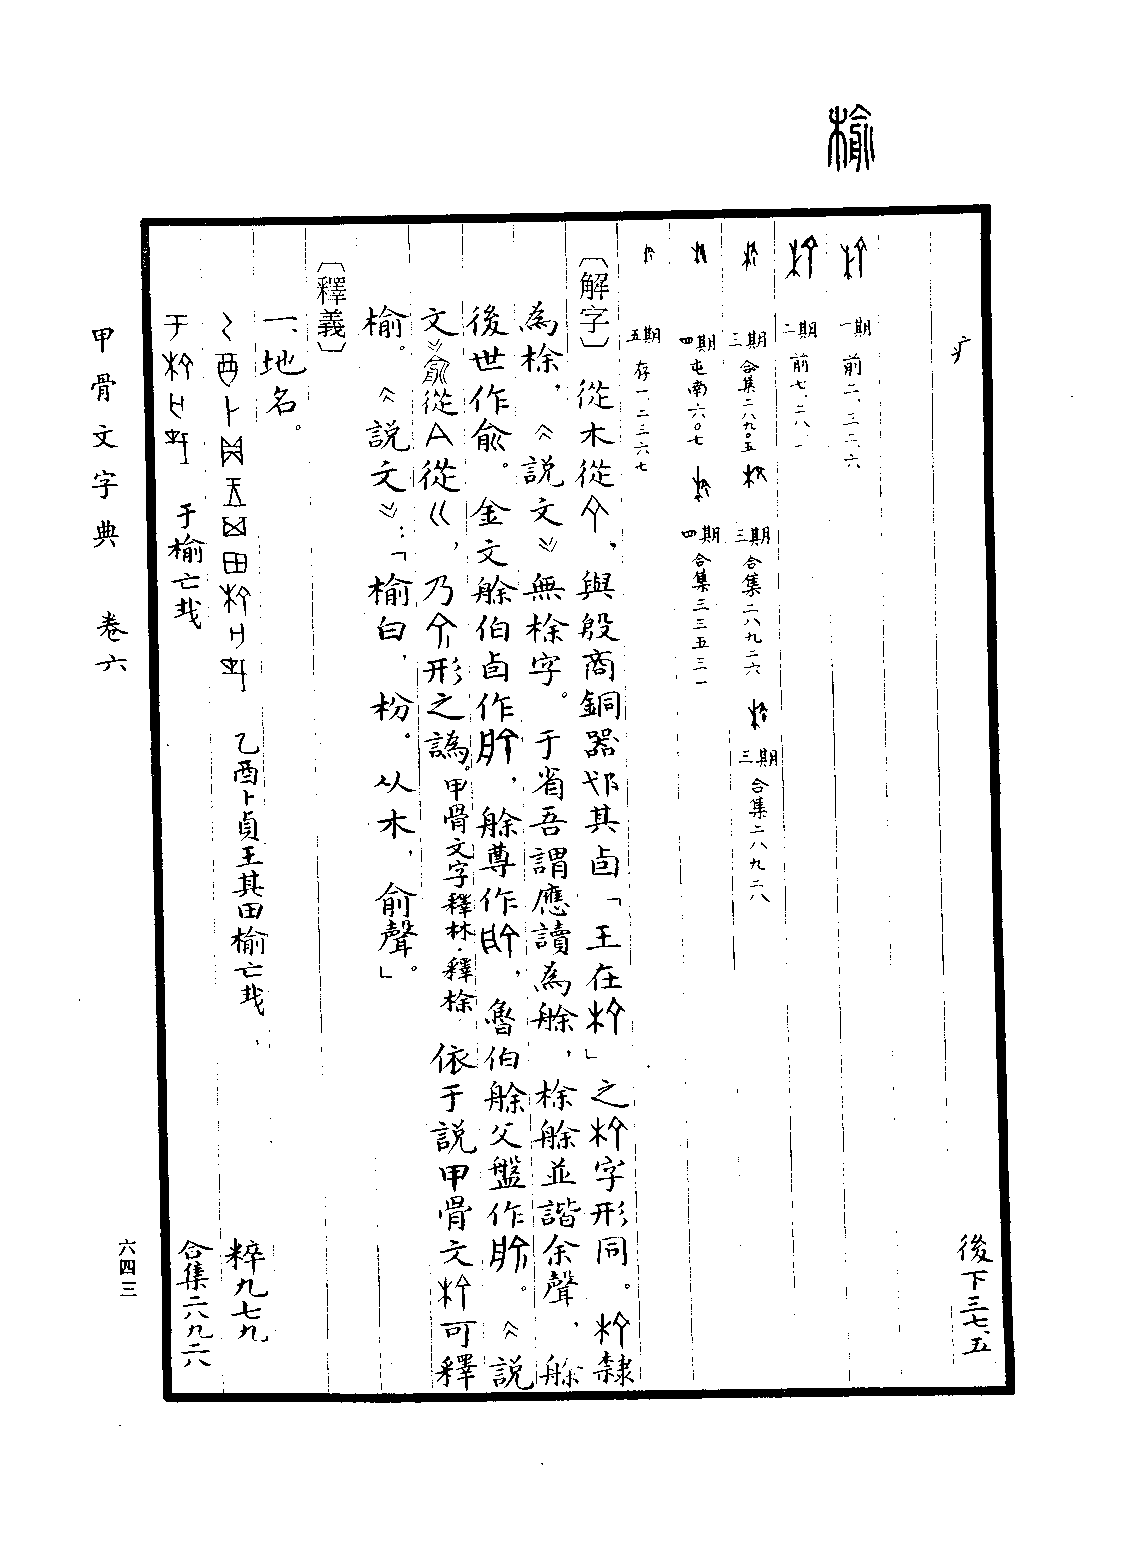 榆
後下三七.五
一期 前二.三二.六
二期 前七.二八.一
三期 合集二八九〇五 三期 合集二八九二六 三期 合集二八九二八
四期 屯南六〇七 四期 合集三三五三一
五期 存一.二三六七
〔解字〕從木從,與殷商銅器其卣「王在」之字形同。隸
為梌,《說文》無梌字。于省吾謂應讀為艅,梌艅並諧余聲,艅
後世作俞。金文艅伯卣作,艅尊作,魯伯艅父盤作。《說
文》俞從亼從巜,乃形之譌。甲骨文字釋林·釋梌 依于說甲骨文可釋
榆。《說文》:「榆白,枌。从木,俞聲」。
〔釋義〕
一、地名。
乙酉卜貞王其田榆亡𢦏, 粹九七九
于榆亡𢦏 合集二八九二八
甲骨文字典 卷六
六四三